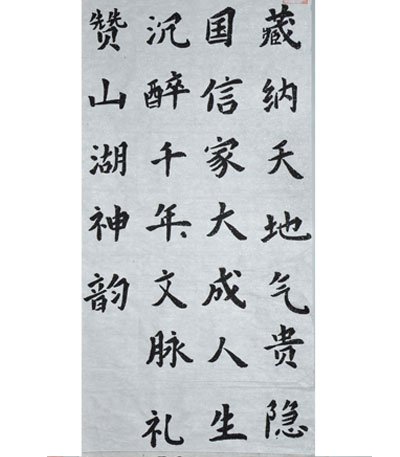 藏纳天地气贵隐
国信家大成人生
沉醉千年文脉礼
赞山湖神韵